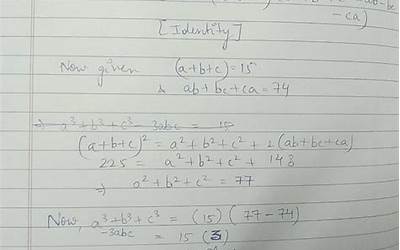 -ab-bc
-ca)
[Identity]
Now given (a+b+c)=15
& ab+bc+ca=74
⇒ a³+b³+c³-3abc = 15
(a+b+c)² = a²+b²+c²+2(ab+bc+ca)
225 = a²+b²+c²+148
⇒ a²+b²+c² = 77
Now, a³+b³+c³ = (15)(77-74)
-3abc = 15(3)